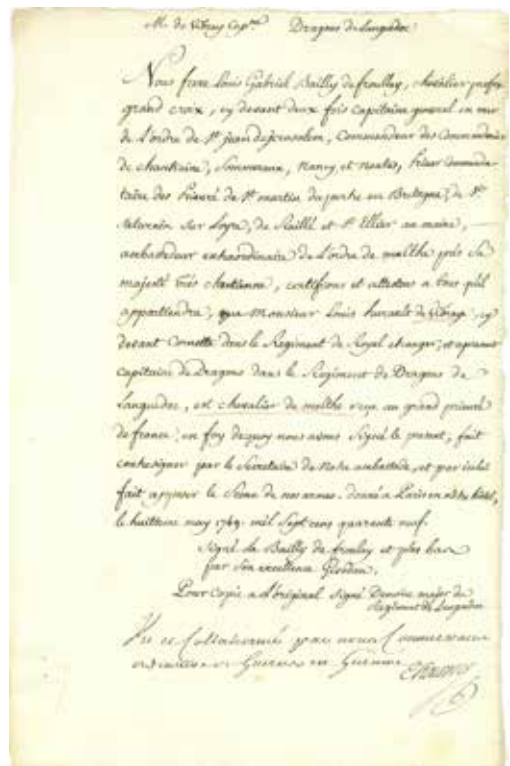 M. de Vibray Cap.ne Dragons de Languedoc
Nous frere Louis Gabriel Bailly de froullay, chevalier
grand croix, cy devant deux fois capitaine general en mer
de L'ordre de St. jean de jerusalem, Commandeur des Commanderies
de chanteraine, Sommereux, Nancy et Nantes, Prieur
des Prieuré de St. martin en Bretagne, de St.
Saturnin sur Loyre, de Raillé et St. Ellier au maine,
ambassadeur extraordinaire de L'ordre de malthe près Sa
majesté très chretienne, certifions et attestons a tous qu'il
appartiendra, que Monsieur Louis hurault de Vibray, cy
devant Cornette dans le Regiment de Royal etranger, et apresent
capitaine de Dragons dans le Regiment de Dragons de
Languedoc, est chevalier de malthe reçu au grand prieuré
de france, en foy de quoy nous avons Signé le present, fait
contresigner par le Secretaire de notre ambassade, et par icelui
fait apposer le Sceau de nos armes. donné a Paris en notre hotel,
le huitieme may 1749. mil Sept cens quarente neuf.
Signé Le Bailly de froulay et plus bas
par Son excellence
Pour Copie a L'original Signé major du
Regiment de Languedoc
Vu et Collationné par nous Commissaire
ordinaire des Guerres en Guienne